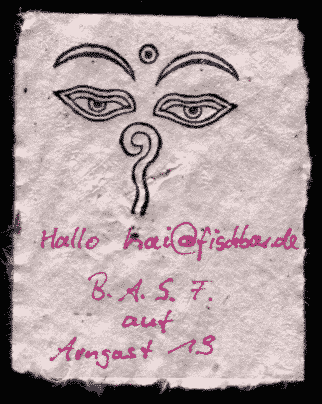 Hallo kai@fischbar.de
B.A.S.F.
auf
Arngast 13